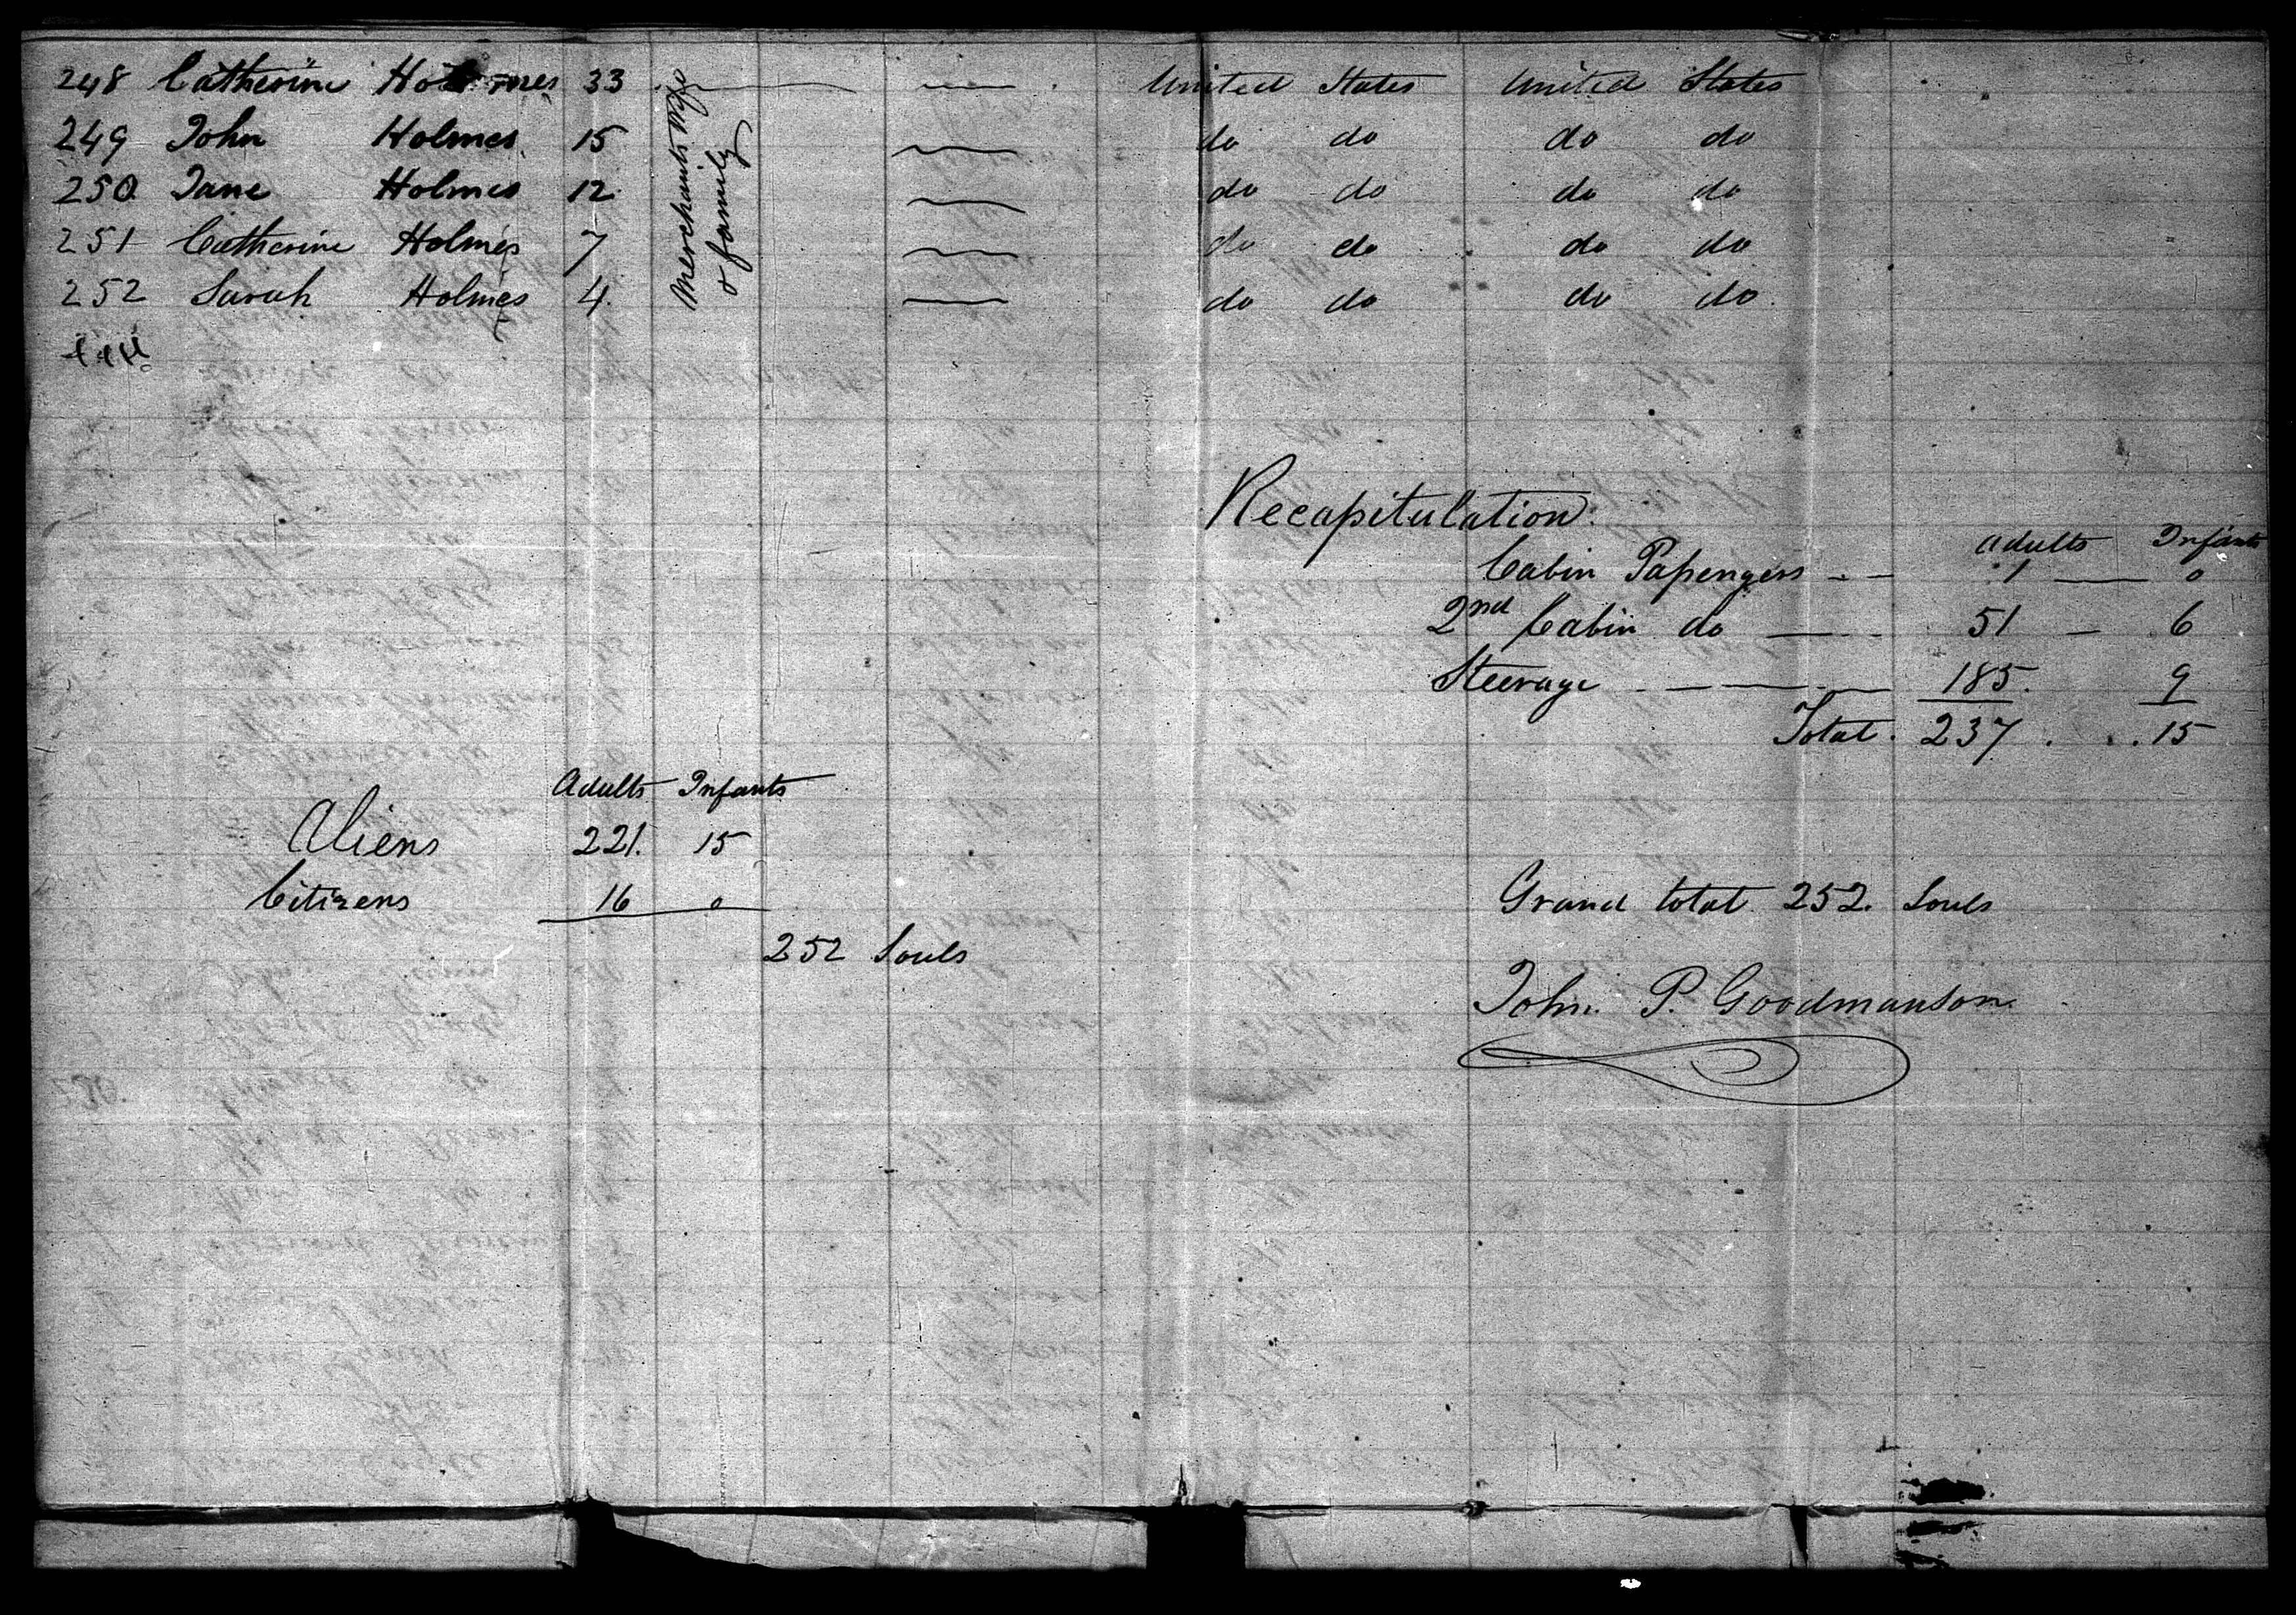 248 Catherine Holmes 33 United States United States
249 John Holmes 15 do do do do
250 Jane Holmes 12 do do do do
251 Catherine Holmes 7 do do do do
252 Sarah Holmes 4. do do do do
Merchants Wife
& family
Recapitulation.
Adults Infants
Cabin Passengers 1 0
2nd Cabin do 51 6
Steerage 185. 9
Total. 237 15
Adults Infants
Aliens 221. 15
Citizens 16 0
252 Souls
Grand total 252. Souls
John. P. Goodmanson.
230.